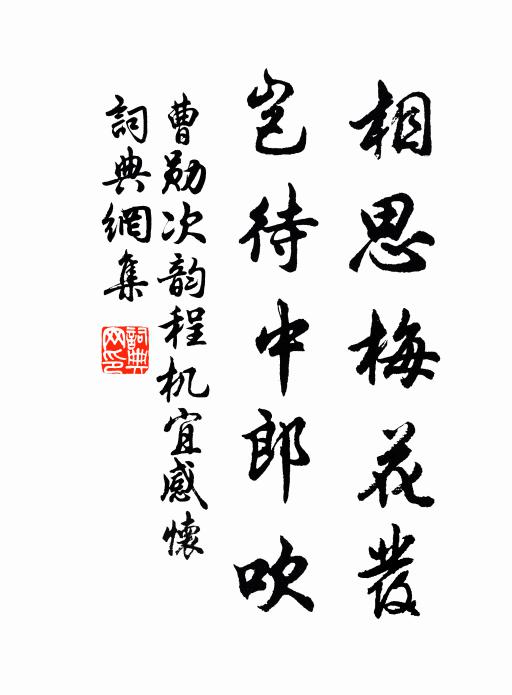 相思梅花發
岂待中郎吹
曹勛次韵程机宜感懷
詞典網集
詞典
网印